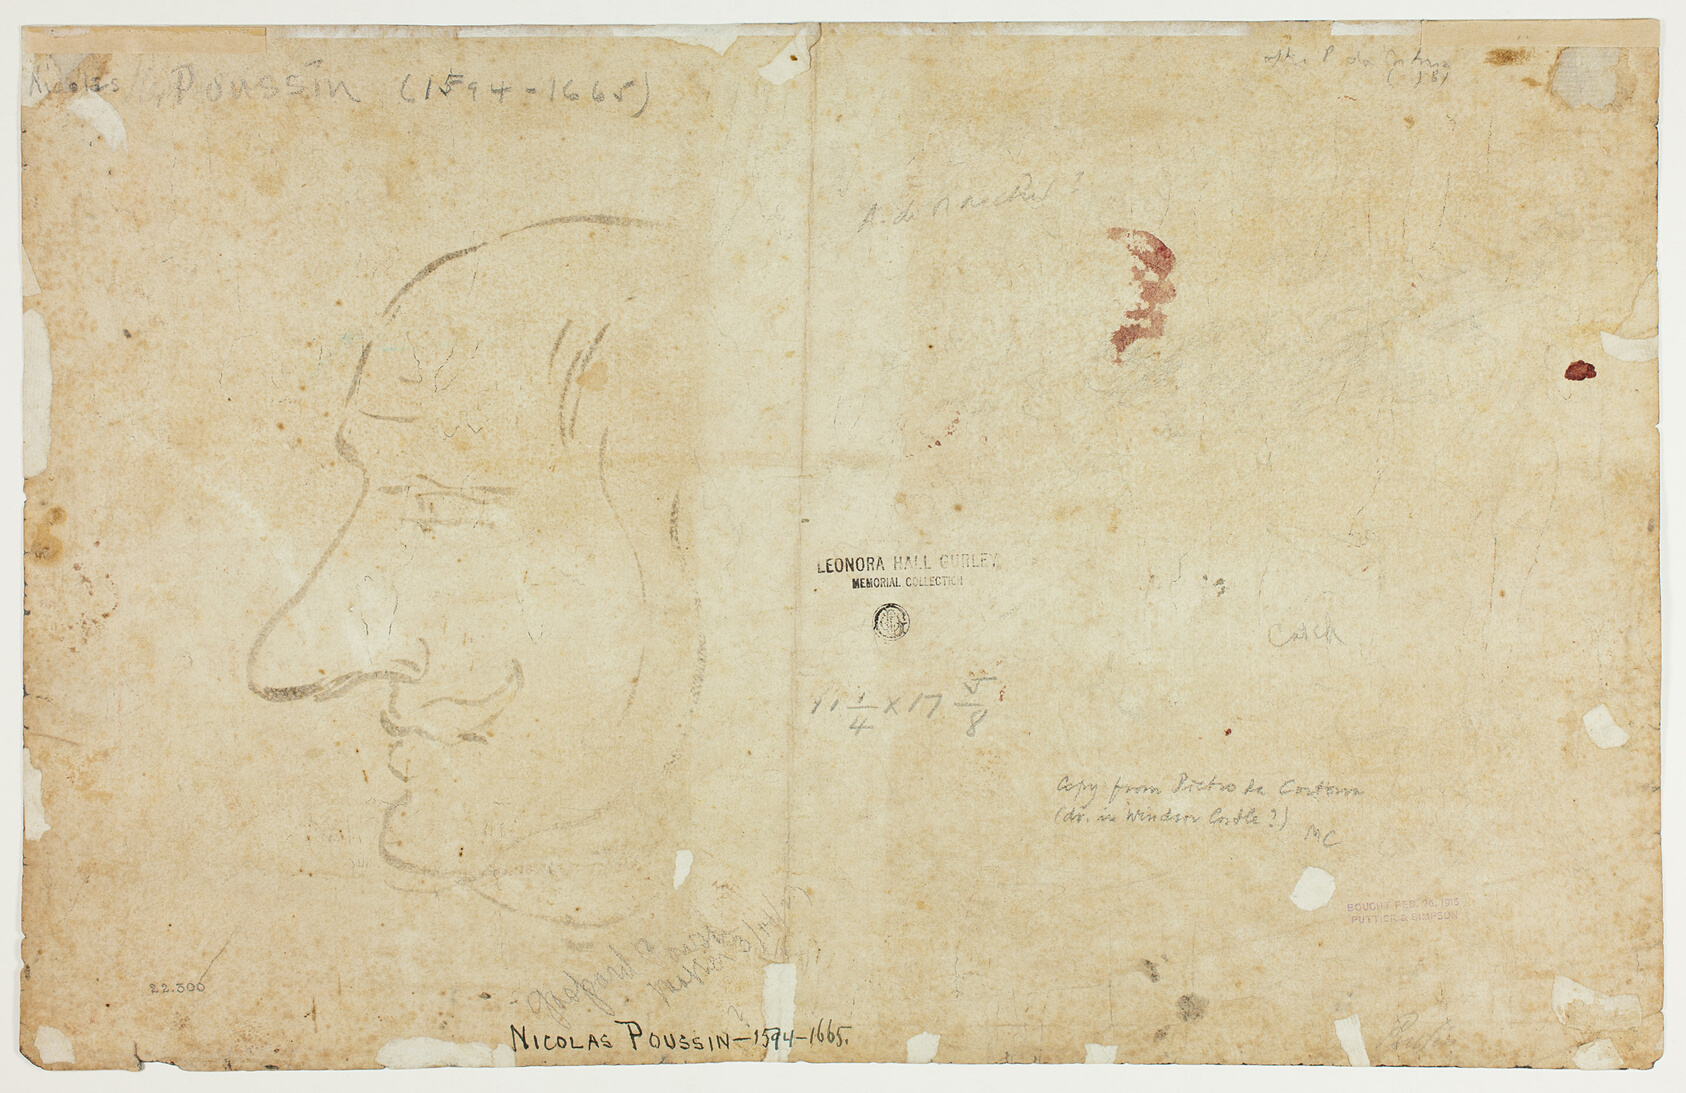 Nicolas Poussin (1594-1665)
after P da
A. de
LEONORA HALL GURLEY
MEMORIAL COLLECTION
11 1/4 x 17 5/8
Copy from Pietro da Cortona
(dr. in Windsor Castle?)
MC
BOUGHT FEB. 26, 1915
PUTTICK & SIMPSON
22.300
NICOLAS POUSSIN—1594—1665.